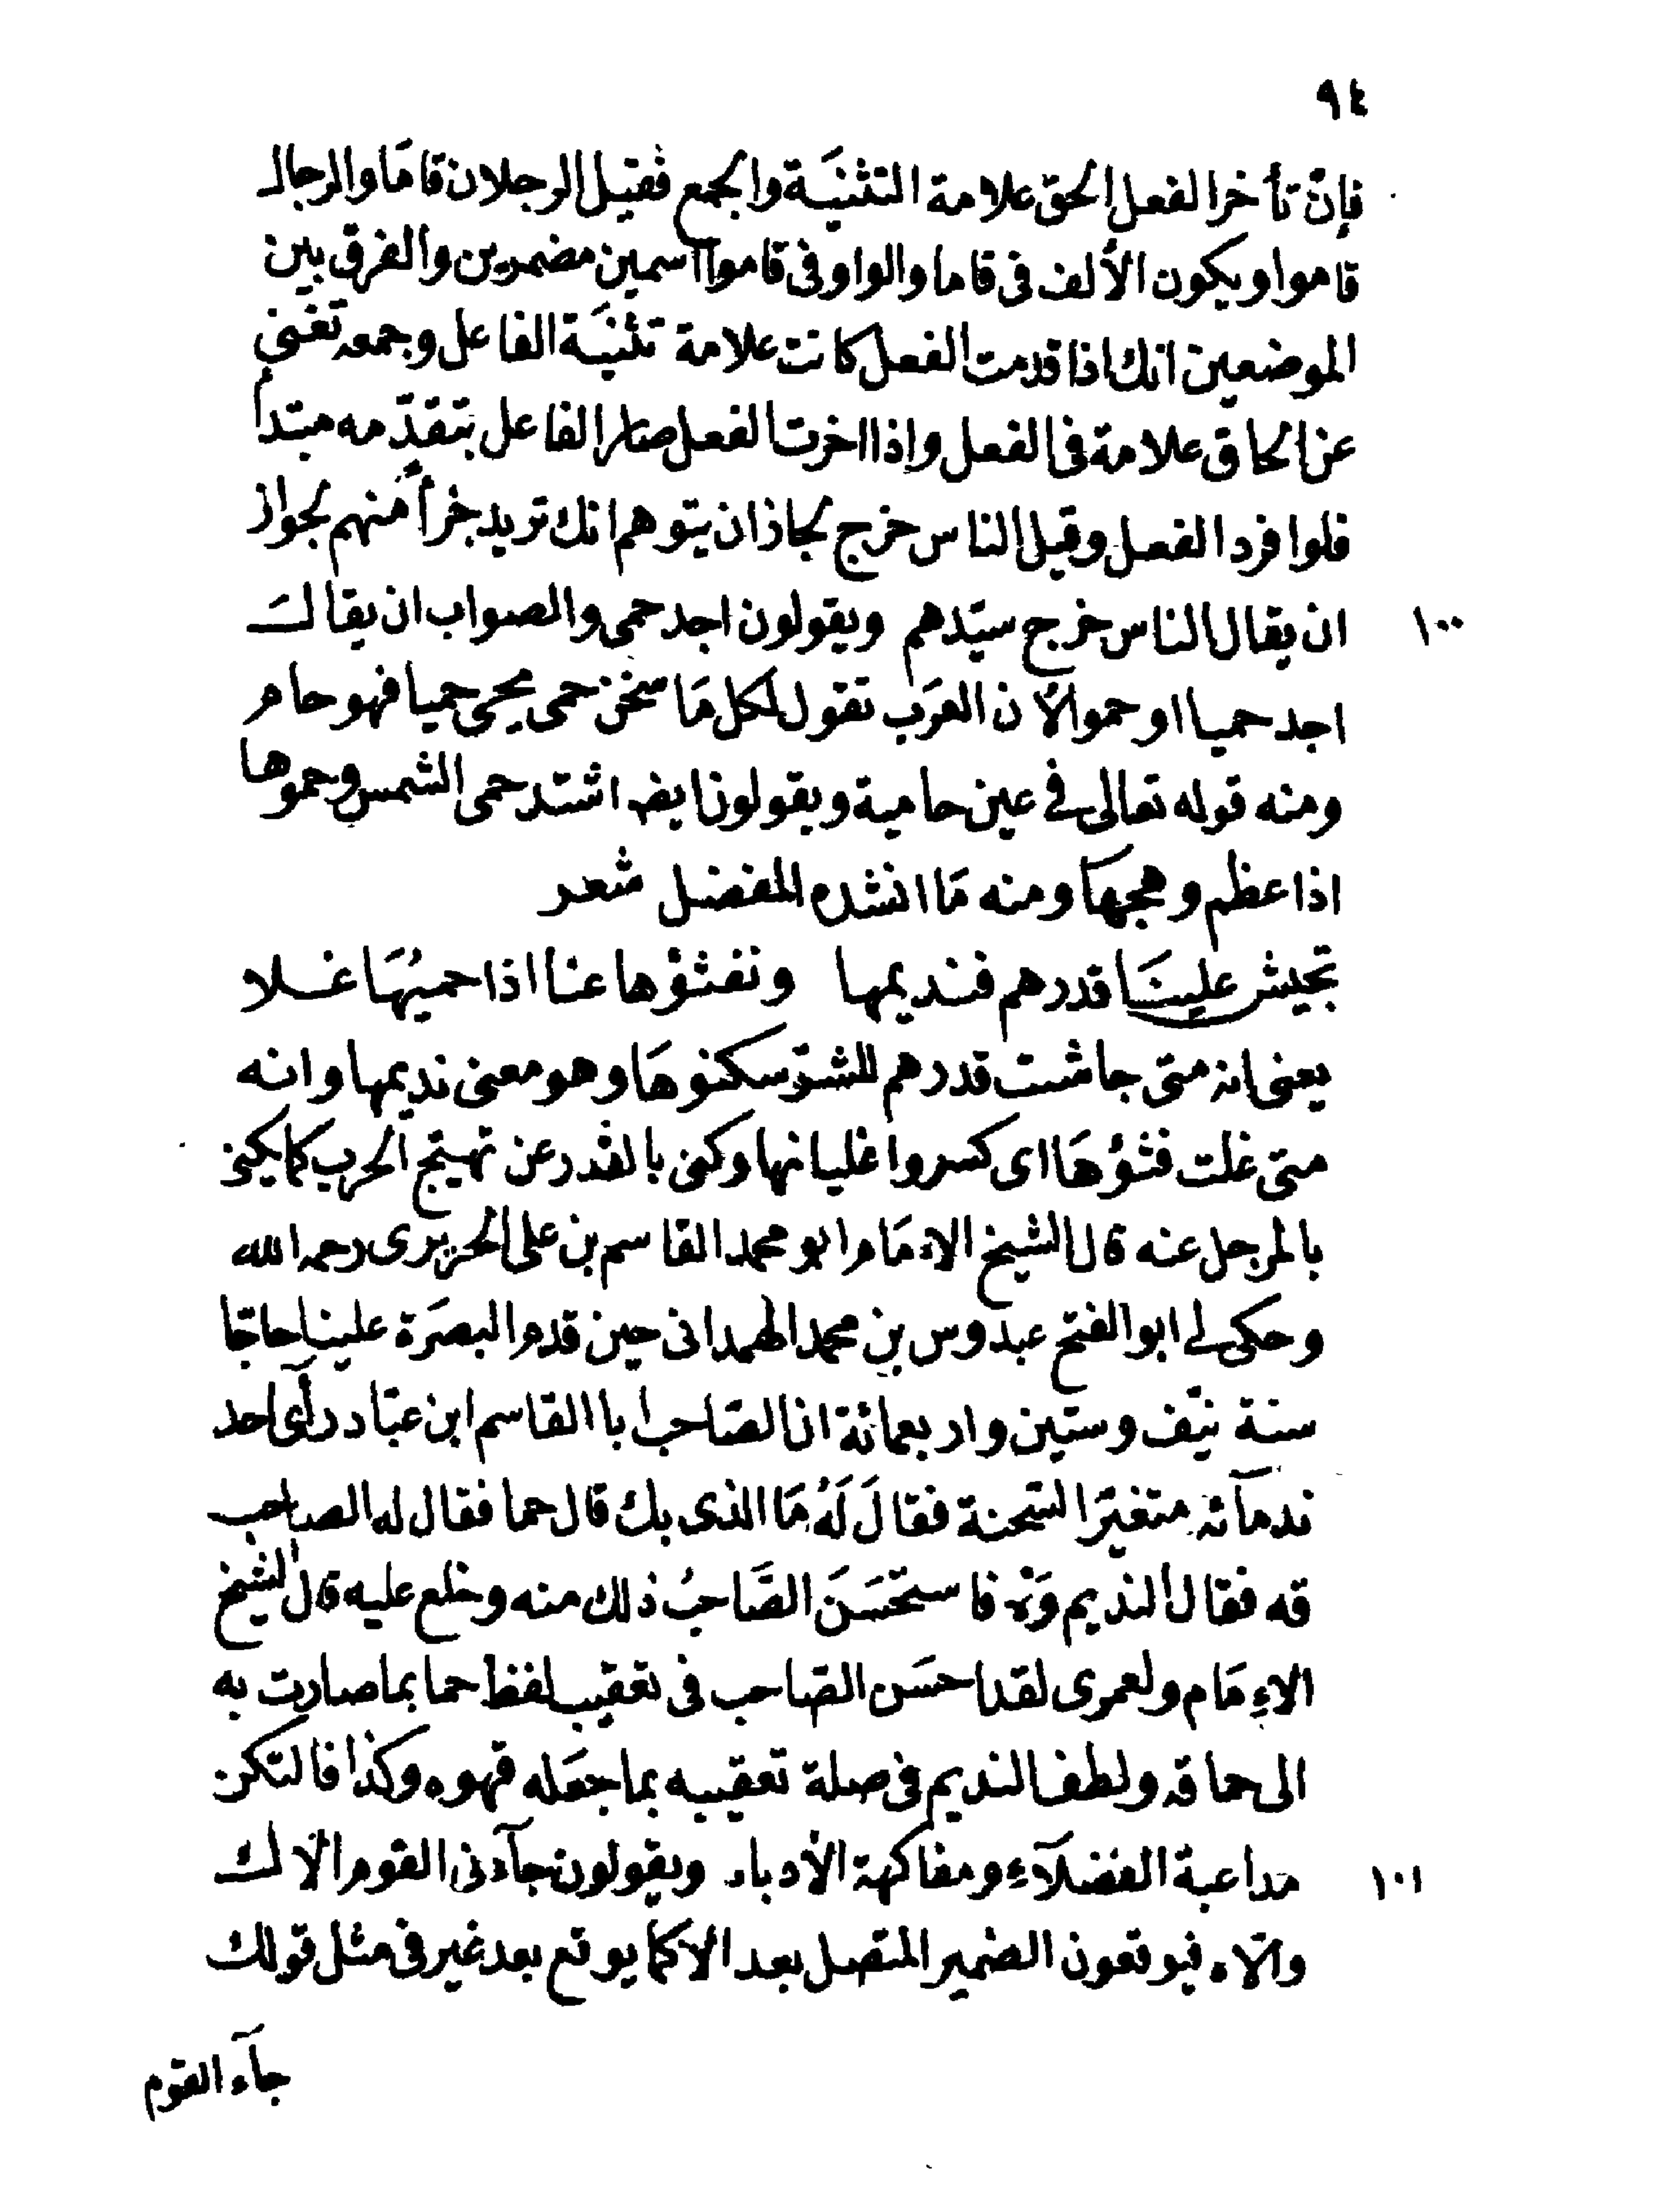 ٩٤
فإن تأخر الفعل الحق علامة التثنيَة والجمع فقيل الرجلان قامَا والرجال
قاموا ويكون الألف فى قاما والواو فى قاموا اسمين مضمرين والفرق بين
الموضعين انك اذا قدمت الفعل كانت علامة تثنيَة الفاعل وجمعه تغنى
عن الحاق علامة فى الفعل واذا اخرت الفعل صار الفاعل بتقدّمه مبتدأ
فلو افرد الفعل وقيل الناس خرج لجاز ان يتوهم انك تريد خبرأ منهم لجواز
١٠٠ ان يقال الناس خرج سيّدهم ويقولون اجد حمى والصواب ان يقال
اجد حميا او حموا لأن العرَب تقول لكل مَا سخن حمى يحمى حميا فهو حام
ومنه قوله تعالى فى عين حامية ويقولون ايضا اشتد حمى الشمس وحموها
اذا عظم وهجها ومنه مَا انشده المفضل شعر
تجيش علينَا قدرهم فنديمها ونفثؤها عنا اذا حميُهَا غلا
يعنى انه متى جاشت قدرهم للشر سكنوهَا وهو معنى نديمها وانه
متى غلت فثؤهَا اى كسروا غليانها وكنى بالقدر عن تهييج الحرب كما يكنى
بالمرجل عنه قال الشيخ الإمَام ابو محمد القاسم بن على الحريرى رحمه الله
وحكى لى ابو الفتح عبدوس بن محمد الهمدانى حين قدم البصرَة علينا حاجّا
سنة نيّف وستين واربعمائة ان الصّاحب ابا القاسم ابن عبّاد رأى احد
ندمآئه متغيّر السّحنة فقالَ لَهُ مَا الذى بك قال حما فقال له الصاحب
قه فقال النديم وَه فاستحسَنَ الصَّاحبُ ذلك منه وخلع عليه قال الشيخ
الإمَام ولعمرى لقد احسَن الصّاحب فى تعقيب لفظ حما بما صارت به
الى حماقه ولطف النديم فى صلة تعقيبه بما جعَله قهوه وكذا فالتكن
١٠١ مداعبة الفضلآء ومفاكهة الأدباء ويقولون جآءنى القوم الّا ك
والّا ه فيوقعون الضمير المتصل بعد الا كما يوقع بعد غير فى مثل قولك
جآء القوم